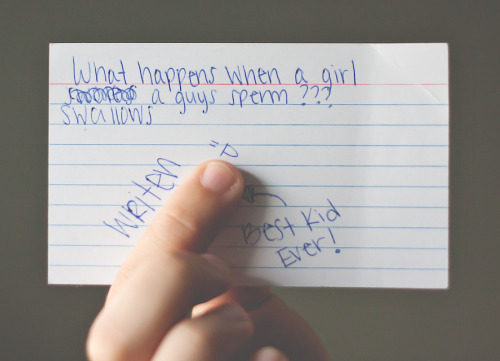 What happens when a girl
a guys sperm ???
swallows
Writen
"P
Best Kid
Ever!